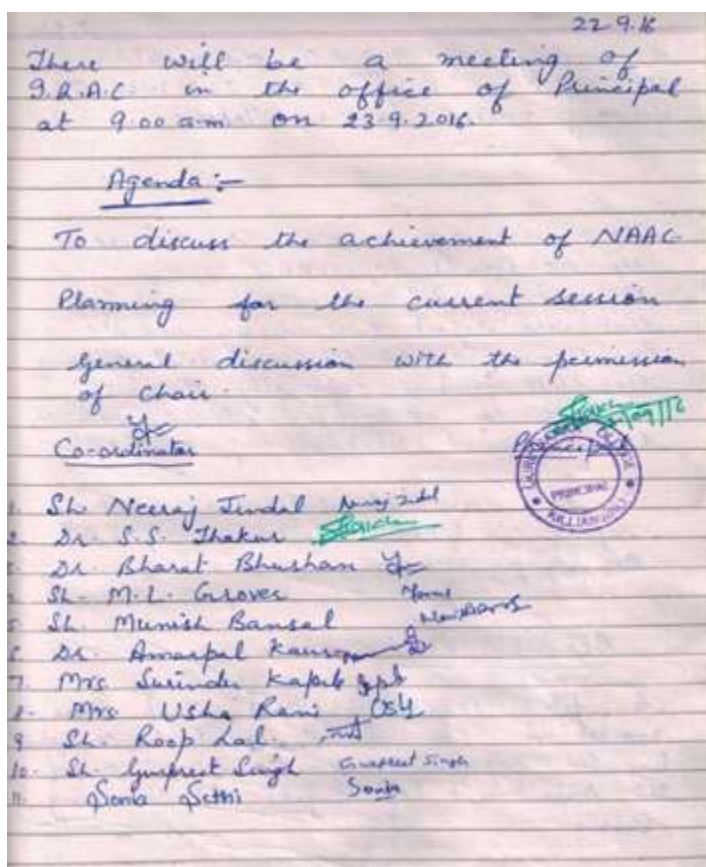 22-9-16
There will be a meeting of
I.Q.A.C. in the office of Principal
at 9.00 a.m. on 23.9.2016.
Agenda :-
To discuss the achievement of NAAC
Planning for the current session
General discussion with the permission
of chair.
Co-ordinator
Principal
PRINCIPAL
1. Sh Neeraj Jindal
2. Dr. S.S. Thakur
3. Dr. Bharat Bhushan
4. Sh. M.L. Grover
5. Sh. Munish Bansal
6. Dr. Amarpal Kaur
7. Mrs. Surinder Kapil
8. Mrs Usha Rani
9 Sh. Roop Lal.
10. Sh. Gurpreet Singh Gurpreet Singh
11. Sonia Sethi Sonia